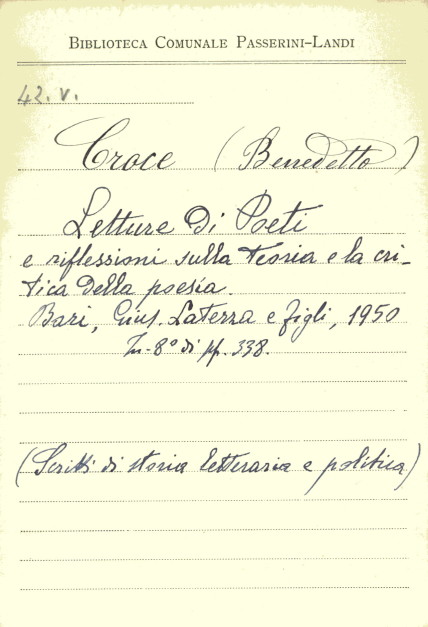 BIBLIOTECA COMUNALE PASSERINI-LANDI
42. V.
Croce (Benedetto)
Letture di Poeti
e riflessioni sulla teoria e la cri-
tica della poesia.
Bari, Gius. Laterza e figli, 1950
In-8° di pp. 338.
(Scritti di storia letteraria e politica)